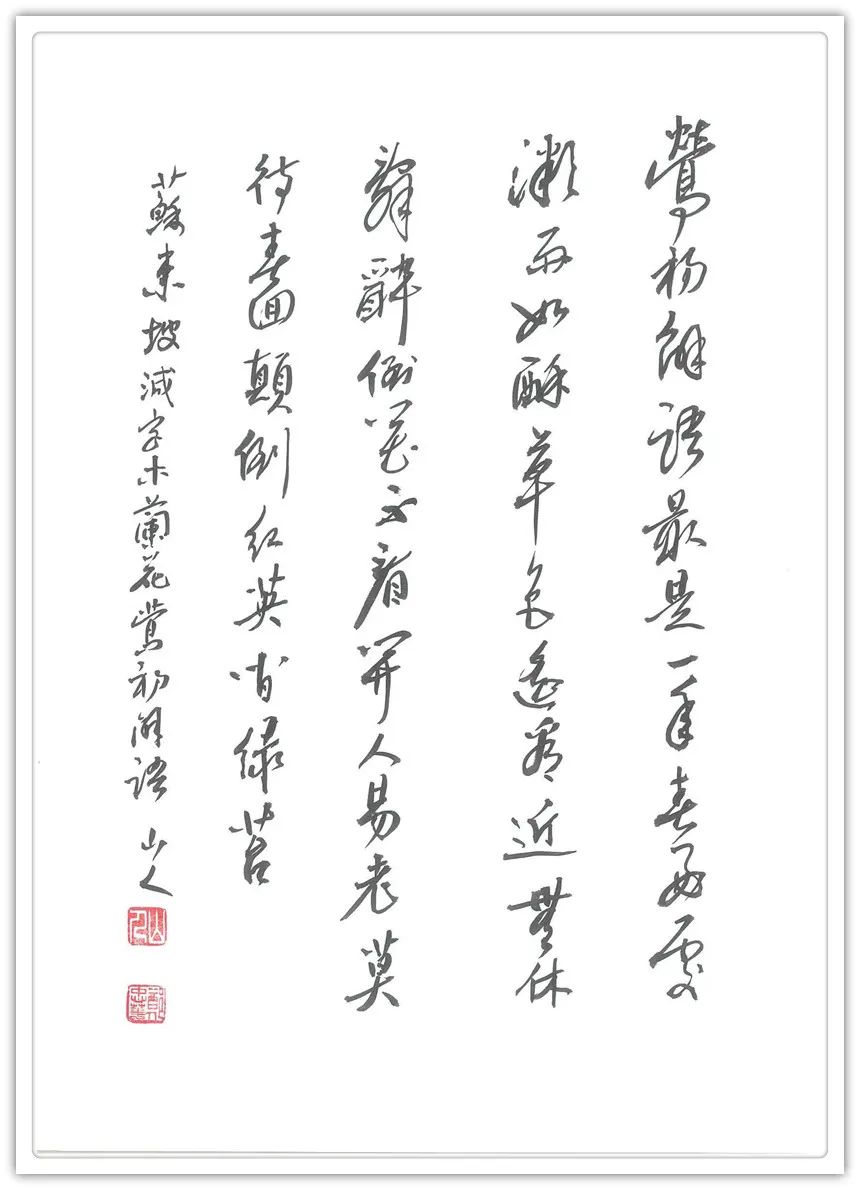 鶯初解語最是一年春好處
微雨如酥草色遙看近無休
辭醉倒花不看開人易老莫
待春回顛倒紅英間綠苔
蘇東坡減字木蘭花鶯初解語 山人
山人